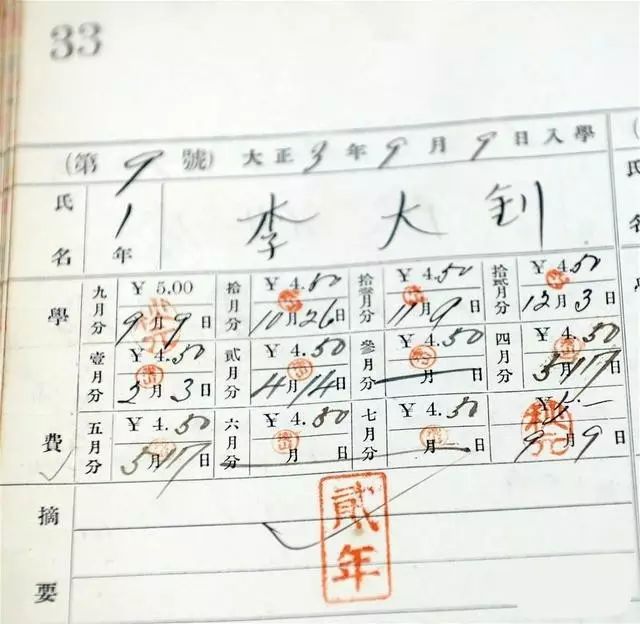 33
(第9號) 大正3年9月9日入學
氏名 1年 李大釗
學費
九月分 ¥5.00 9月9日
拾月分 ¥4.50 10月26日
拾壹月分 ¥4.50 11月9日
拾貳月分 ¥4.50 12月3日
壹月分 ¥4.50 2月3日
貳月分 ¥4.50 4月14日
參月分 ¥4.50 月 日
四月分 ¥4.50 5月17日
五月分 ¥4.50 5月17日
六月分 ¥4.50 月 日
七月分 ¥4.50 月 日
¥ 9月9日
摘要
貳年
氏名